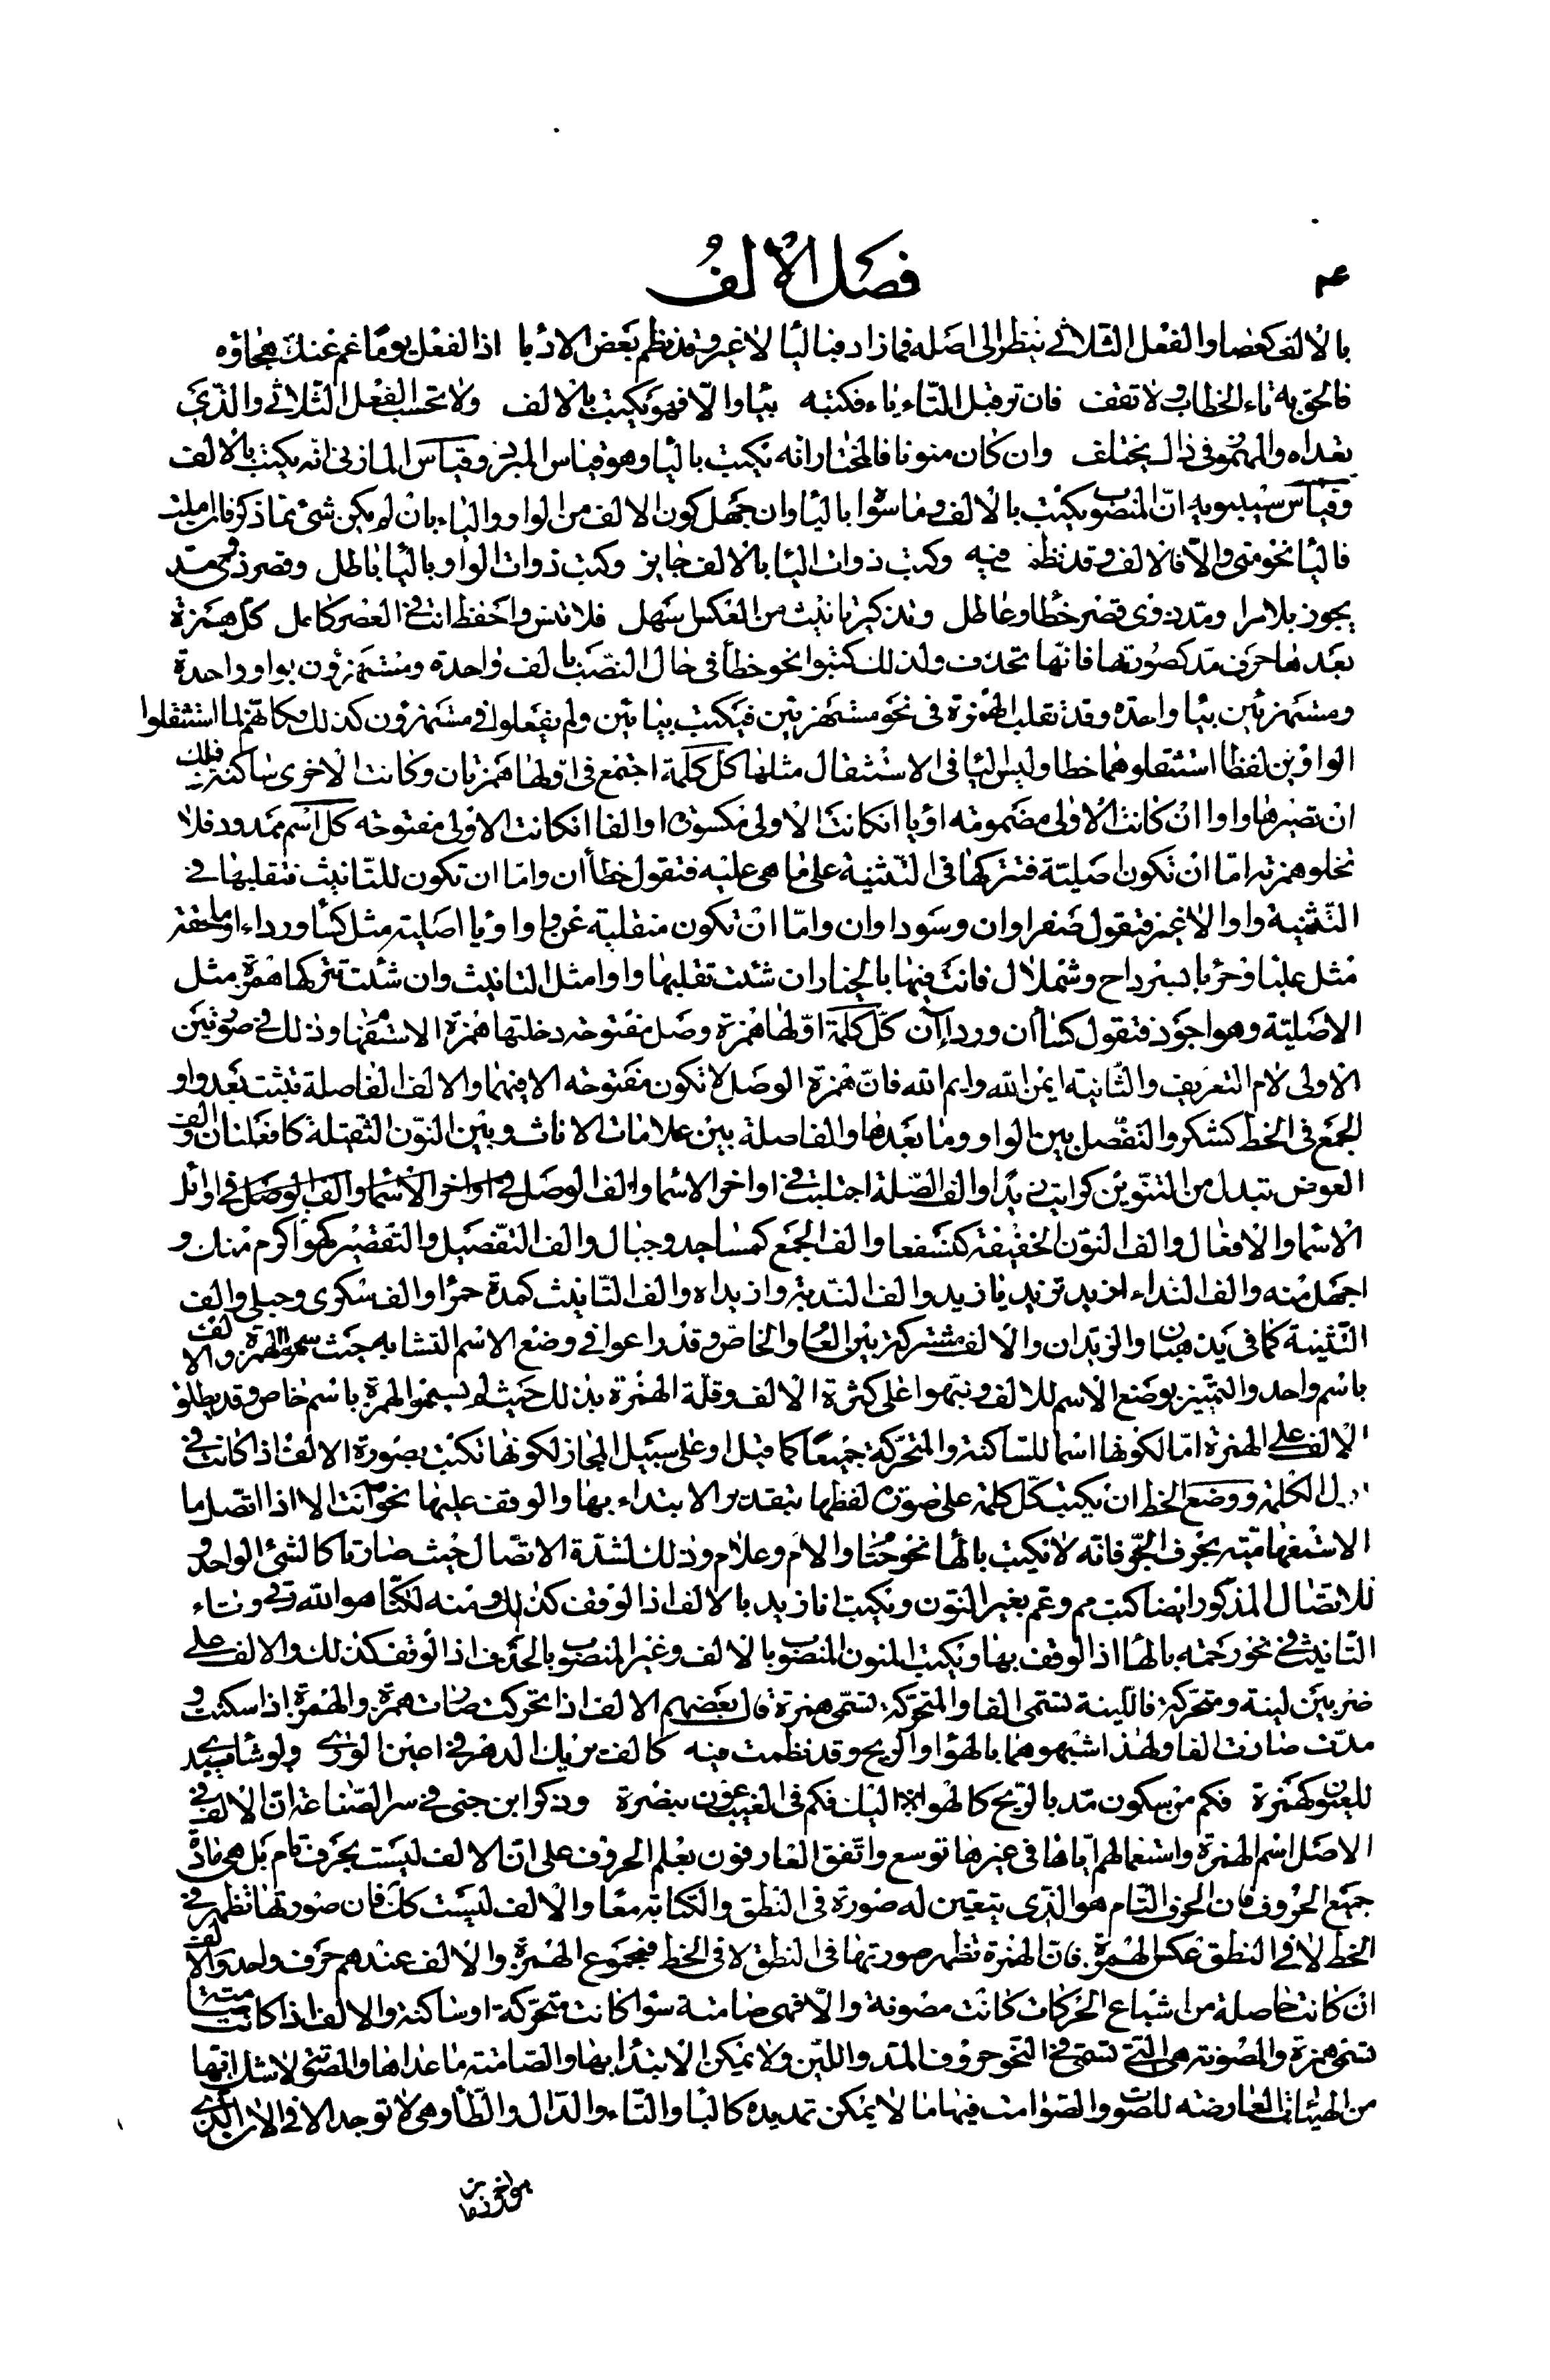 فصل الالف
بالالف كعصا والفعل الثلاثي ينظر الى اصله فما زاد فبالياء لا غير وقد نظم بعض الادباء اذا الفعل يوما غم عنك هجاؤه
فالحق به تاء الخطاب ولا تقف فان تر قبل التاء ياء فكتبه بياء والا فهو يكتب بالالف ولا تحسب الفعل الثلاثي والذي
تعداه والمهموز في ذاك يختلف وان كان منونا فالمختار انه يكتب بالياء وهو قياس المبرد وقياس المازني انه يكتب بالالف
وقياس سيبويه ان المنصوب يكتب بالالف وما سواه بالياء وان جهل كون الالف من الواو والياء بان لم يكن شئ مما ذكر فان اميلت
فالياء نحو متى والا فالالف وقد نظمه فيه وكتب ذوات اليا بالالف جايز وكتب ذوات الواو باليا باطل وقصر ذوي مد
يجوز بلا مرا ومد ذوى قصر خطا وعاطل وتذكير تانيث من العكس سهل فلا تنس واحفظ انت في العصر كامل كل همزة
بعدها حرف مد كصورتها فانها تحذف ولذلك كتبوا نحو خطأ في حال النصب بالف واحدة ومستهزؤن بواو واحدة
ومستهزئين بيا واحدة وقد تقلب الهمزة في نحو مستهزيين فيكتب بيايين ولم يفعلوا في مستهزؤن كذلك وكانهم لما استثقلوا
الواوين لفظا استثقلوهما خطا وليس اليا في الاستثقال مثلها كل كلمة اجتمع في اولها همزتان وكانت الاخرى ساكنة فلك
ان تصيرها واوا ان كانت الاولى مضمومة او يا ان كانت الاولى مكسورة او الفا ان كانت الاولى مفتوحة كل اسم ممدود فلا
تخلو همزته اما ان تكون اصلية فتتركها في التثنية على ما هي عليه فتقول خطاأن واما ان تكون للتانيث فتقلبها في
التثنية واوا لا غير فتقول صفراوان وسوداوان واما ان تكون منقلبة عن واو او يا اصلية مثل كساء ورداء او ملحقة
مثل علباء وحرباء بسرداح وشملال فانت فيها بالخيار ان شئت تقلبها واوا مثل التانيث وان شئت تتركها همزة مثل
الاصلية وهو اجود فتقول كساأن ورداأن كل كلمة اولها همزة وصل مفتوحة دخلتها همزة الاستفهام وذلك في صورتين
الاولى لام التعريف والثانية ايمن الله وايم الله فان همزة الوصل لا تكون مفتوحة الا فيهما والالف الفاصلة تثبت بعد واو
الجمع في الخط كشكروا لتفصل بين الواو وما بعدها والفاصلة بين علامات الاناث وبين النون الثقيلة كافعلنان والف
العوض تبدل من التنوين كرايت زيدا والف الصلة اجتلبت في اواخر الاسماء والف الوصل في اوائل
الاسماء والافعال والف النون الخفيفة كنسفعا والف الجمع كمساجد وجبال والف التفضيل والتقصير كهو اكرم منك و
اجهل منه والف النداء ازيد تريد يا زيد والف الندبة وازيداه والف التانيث كمدة حمراء والف سكرى وحبلى والف
التثنية كما في يذهبان والزيدان والالف مشتركة بين العام والخاص وقد راعوا في وضع الاسم التشابه حيث سموا الهمزة والالف
باسم واحد والتمييز بوضع الاسم للالف ونبهوا على كثرة الالف وقلة الهمزة بذلك حيث لم يسموا الهمزة باسم خاص وقد يطلق
الالف على الهمزة اما لكونها اسما للساكنة والمتحركة جميعا كما قيل او على سبيل المجاز لكونها تكتب بصورة الالف اذا كانت في
اول الكلمة ووضع الخط ان يكتب كل كلمة على صورة لفظها بتقدير الابتداء بها والوقف عليها نحو انت الا اذا اتصل ما
الاستفهامية بحرف الجر فانه لا تكتب بالها نحو حتام والام وعلام وذلك لشدة الاتصال حيث صارتا كالشئ الواحد و
للاتصال المذكور ايضا كتب مم وعم بغير النون ويكتب انا زيد بالالف اذ الوقف كذلك ومنه لكنا هو الله ربي وتاء
التانيث في نحو رحمة بالهاء اذ الوقف بها ويكتب المنون المنصوب بالالف وغير المنصوب بالحذف اذ الوقف كذلك والالف على
ضربين لينة ومتحركة فاللينة تسمى الفا والمتحركة تسمى همزة قال بعضهم الالف اذا تحركت صارت همزة والهمزة اذا سكنت و
مدت صارت الفا ولهذا شبهوهما بالهواء والريح وقد نظمت فيه كالف يريك الدهر في اعين الورى ولو شاء يبيد
للعيون كهمزة فكم من سكون مد بالريح كالهوا اليك فكم في الغيب عون بنصرة وذكر ابن جني في سر الصناعة ان الالف في
الاصل اسم الهمزة واستعمالهم اياها في غيرها توسع واتفق العارفون بعلم الحروف على ان الالف ليست بحرف تام بل هي مادة
جميع الحروف فان الحرف التام هو الذي يتعين له صورة في النطق والكتابة معا والالف ليست كك فان صورتها تظهر في
الخط لا في النطق عكس الهمزة فان الهمزة تظهر صورتها في النطق لا في الخط فمجموع الهمزة والالف عندهم حرف واحد والالف
ان كانت حاصلة من اشباع الحركات كانت مصوتة والا فهي صامتة سواء كانت متحركة او ساكنة والالف اذا كانت صامتة
تسمى همزة والمصوتة هي التي تسمى في النحو حروف المد واللين ولا يمكن الابتداء بها والصامتة ما عداها والمصوت لا شك انها
من الهيئات العارضة للصوت والصوامت فيها ما لا يمكن تمديده كالباء والتاء والدال والطاء وهي لا توجد الا في الان الذي